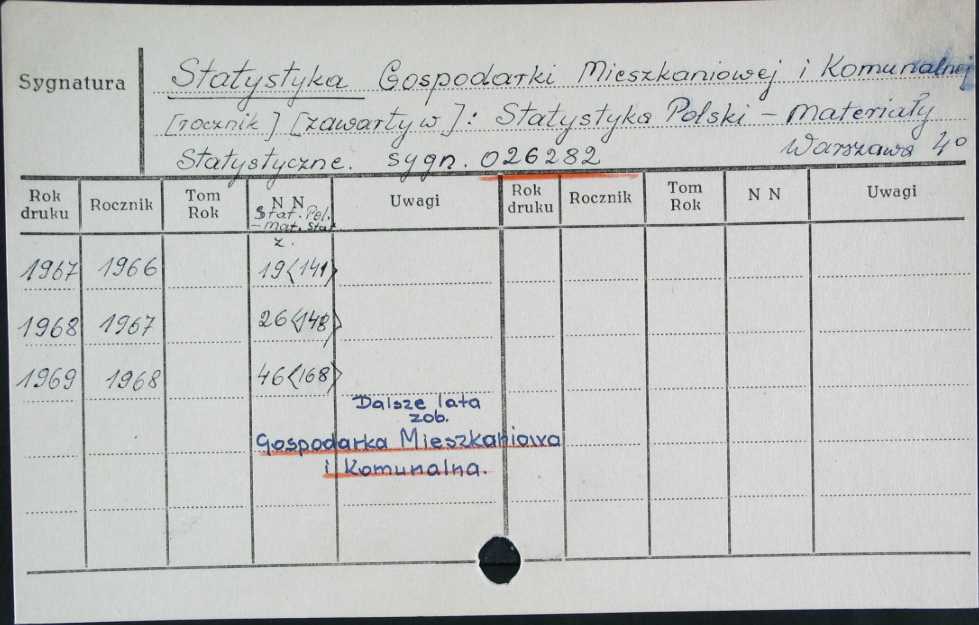 Sygnatura
Statystyka Gospodarki Mieszkaniowej i Komunalnej
[rocznik] [zawarty w]: Statystyka Polski – materiały
Statystyczne. sygn. 026282 Warszawa 4°
Rok druku Rocznik Tom Rok N N Uwagi Rok druku Rocznik Tom Rok N N Uwagi
Stat. Pol.
– mat. stat.
z.
1967 1966 19<141>
1968 1967 26<148>
1969 1968 46<168>
Dalsze lata
zob.
Gospodarka Mieszkaniowa
i Komunalna.